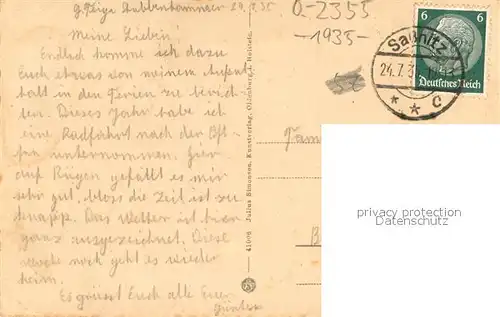 z. Zt. Stubbenkammer 24.7.35
Meine Lieben!
Endlich komme ich dazu
Euch etwas von meinem Aufent
halt in den Ferien zu berich
ten. Dieses Jahr habe ich
eine Radfahrt nach der Ost
see unternommen. Hier
auf Rügen gefällt es mir
sehr gut, bloss die Zeit ist zu
knapp. Das Wetter ist hier
ganz ausgezeichnet. Diese
Woche noch geht es wieder
heim.
Es grüsst Euch alle Euer
Günter
41009 Julius Simonsen, Kunstverlag, Oldenburg i. Holstein.
O-2355
-1935-
Saßnitz
24.7.3
* * c
6 6
Deutsches Reich
Fam
B
privacy protection
Datenschutz